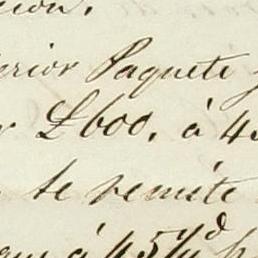 cion.
erior Paquete
£600. á 45
te remite
á 45 ¼ d